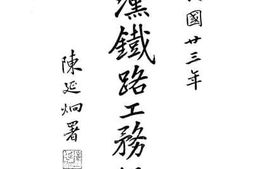 國廿三年
漢鐵路工務
陳延炯署